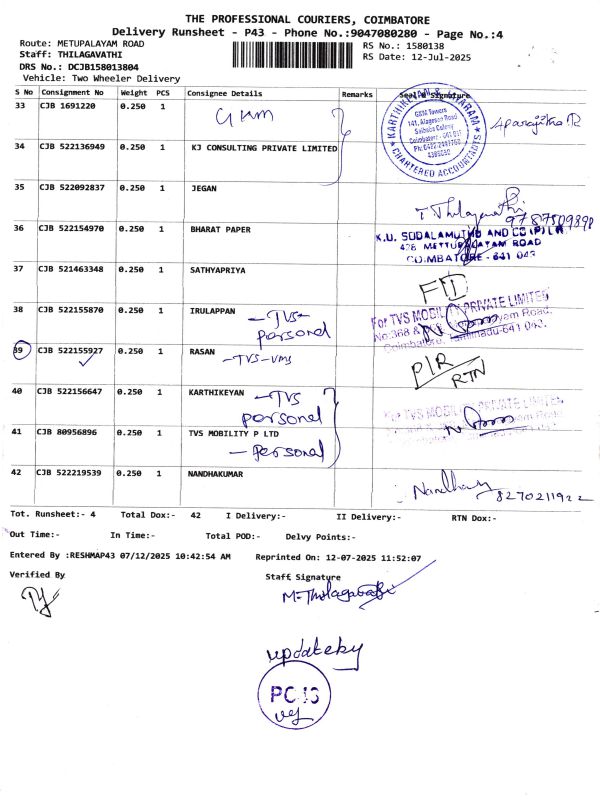 THE PROFESSIONAL COURIERS, COIMBATORE
Delivery Runsheet - P43 - Phone No.:9047080280 - Page No.:4
Route: METUPALAYAM ROAD
Staff: THILAGAVATHI
DRS No.: DCJB158013804
Vehicle: Two Wheeler Delivery
RS No.: 1580138
RS Date: 12-Jul-2025
S No Consignment No Weight PCS Consignee Details Remarks Seal & Signature
33 CJB 1691220 0.250 1
KARTHIKEYAN & JAYARAM
CHARTERED ACCOUNTANTS
G&M Towers
141, Alagesan Road
Saibaba Colony
Coimbatore - 641 011
Aparajitha R
34 CJB 522136949 0.250 1 KJ CONSULTING PRIVATE LIMITED
35 CJB 522092837 0.250 1 JEGAN
T Thilagavathi
9787509898
36 CJB 522154970 0.250 1 BHARAT PAPER
K.U. SODALAMUTHU AND CO (P) Ltd
METTUPALAYAM ROAD
COIMBATORE - 641 043
37 CJB 521463348 0.250 1 SATHYAPRIYA
FID
38 CJB 522155870 0.250 1 IRULAPPAN - TVS -
personal
For TVS MOBILITY PRIVATE LIMITED
Coimbatore, Tamilnadu-641 043.
39 CJB 522155927 0.250 1 RASAN - TVS - VMS
P/R
RTN
40 CJB 522156647 0.250 1 KARTHIKEYAN - TVS
personal
For TVS MOBILITY PRIVATE LIMITED
41 CJB 80956896 0.250 1 TVS MOBILITY P LTD
- personal
42 CJB 522219539 0.250 1 NANDHAKUMAR
8270211922
Tot. Runsheet:- 4 Total Dox:- 42 I Delivery:- II Delivery:- RTN Dox:-
Out Time:- In Time:- Total POD:- Delvy Points:-
Entered By :RESHMAP43 07/12/2025 10:42:54 AM Reprinted On: 12-07-2025 11:52:07
Verified By Staff Signature
M. Thilagavathi
update by